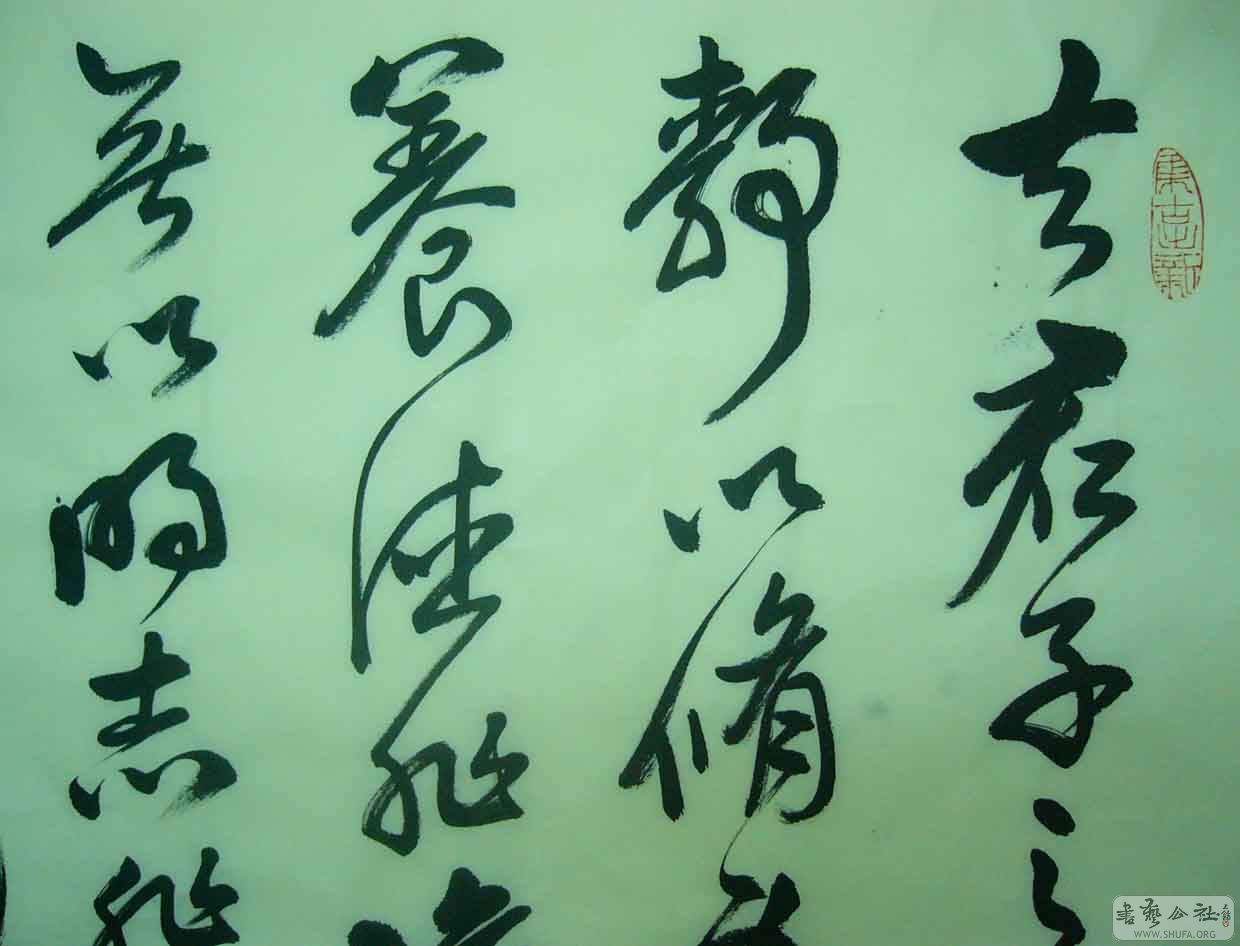 夫君子之
靜以脩
養德非
無以明志非
書藝公社
WWW.SHUFA.ORG